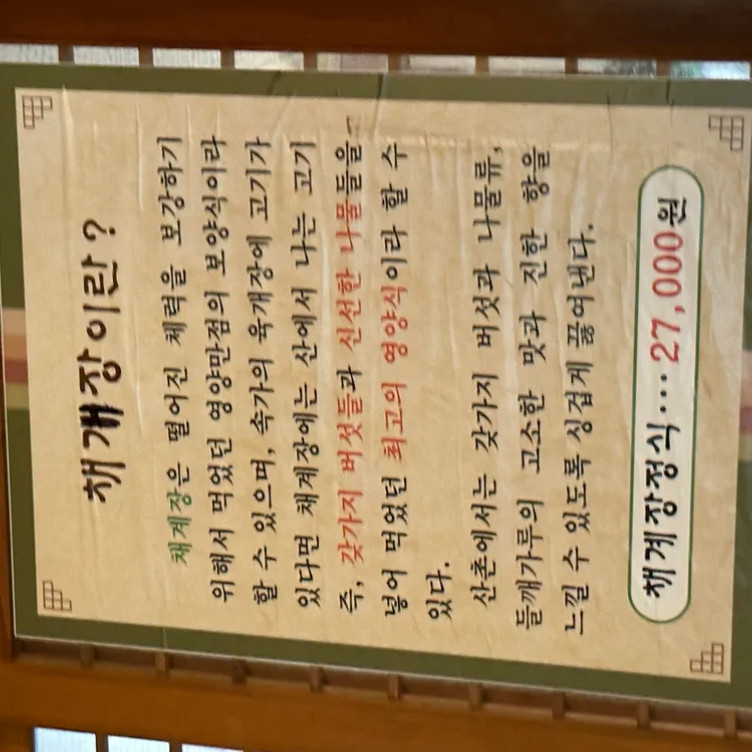 채개장이란?
채계장은 떨어진 체력을 보강하기
위해서 먹었던 영양만점의 보양식이라
할 수 있으며, 속가의 육개장에 고기가
있다면 채계장에는 산에서 나는 고기
즉, 갖가지 버섯들과 신선한 나물들을
넣어 먹었던 최고의 영양식이라 할 수
있다.
산촌에서는 갖가지 버섯과 나물류,
들깨가루의 고소한 맛과 진한 향을
느낄 수 있도록 싱겁게 끓여낸다.
채계장정식... 27,000원